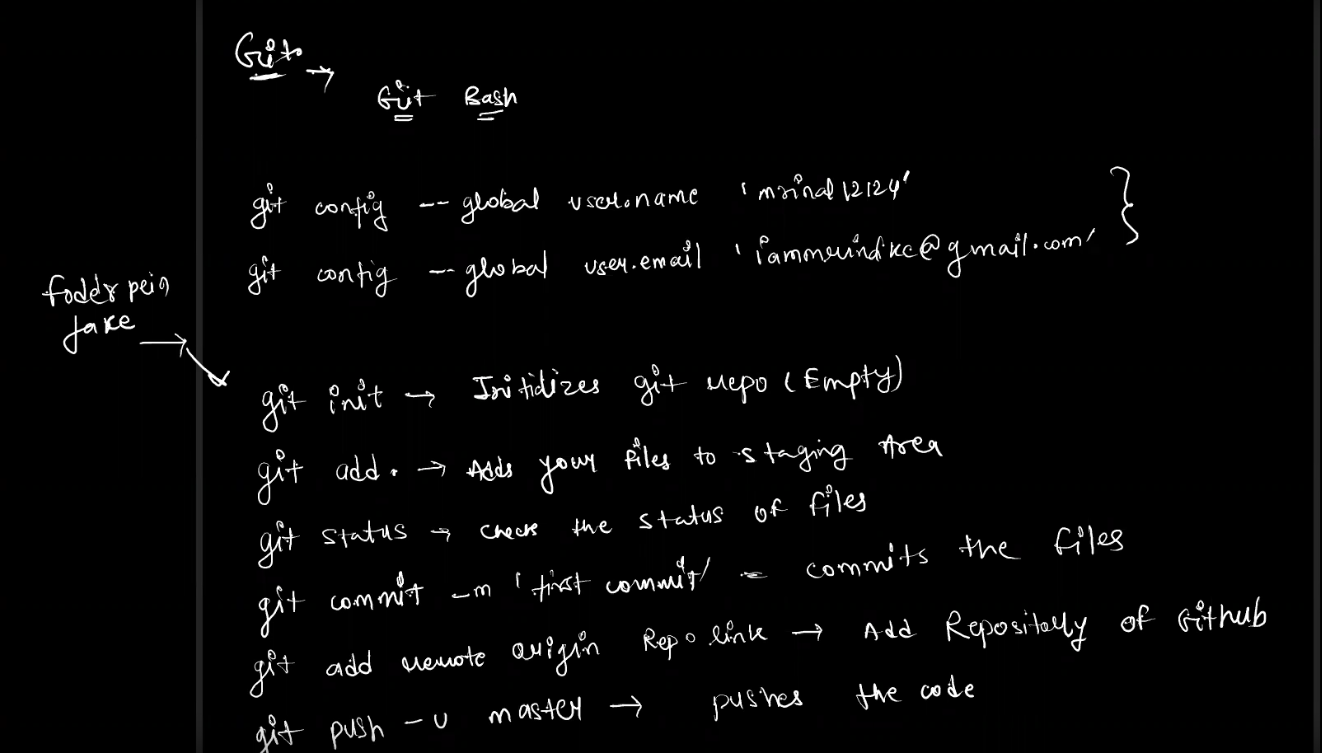 Git →
Git Bash
git config -- global user.name 'mrinal12124'
git config -- global user.email '@gmail.com'
git init → Initializes git repo (Empty)
git add . → Adds your files to staging Area
git status → check the status of files
git commit -m 'first commit' - commits the files
git add remote origin Repo link → Add Repository of Github
git push -u master → pushes the code